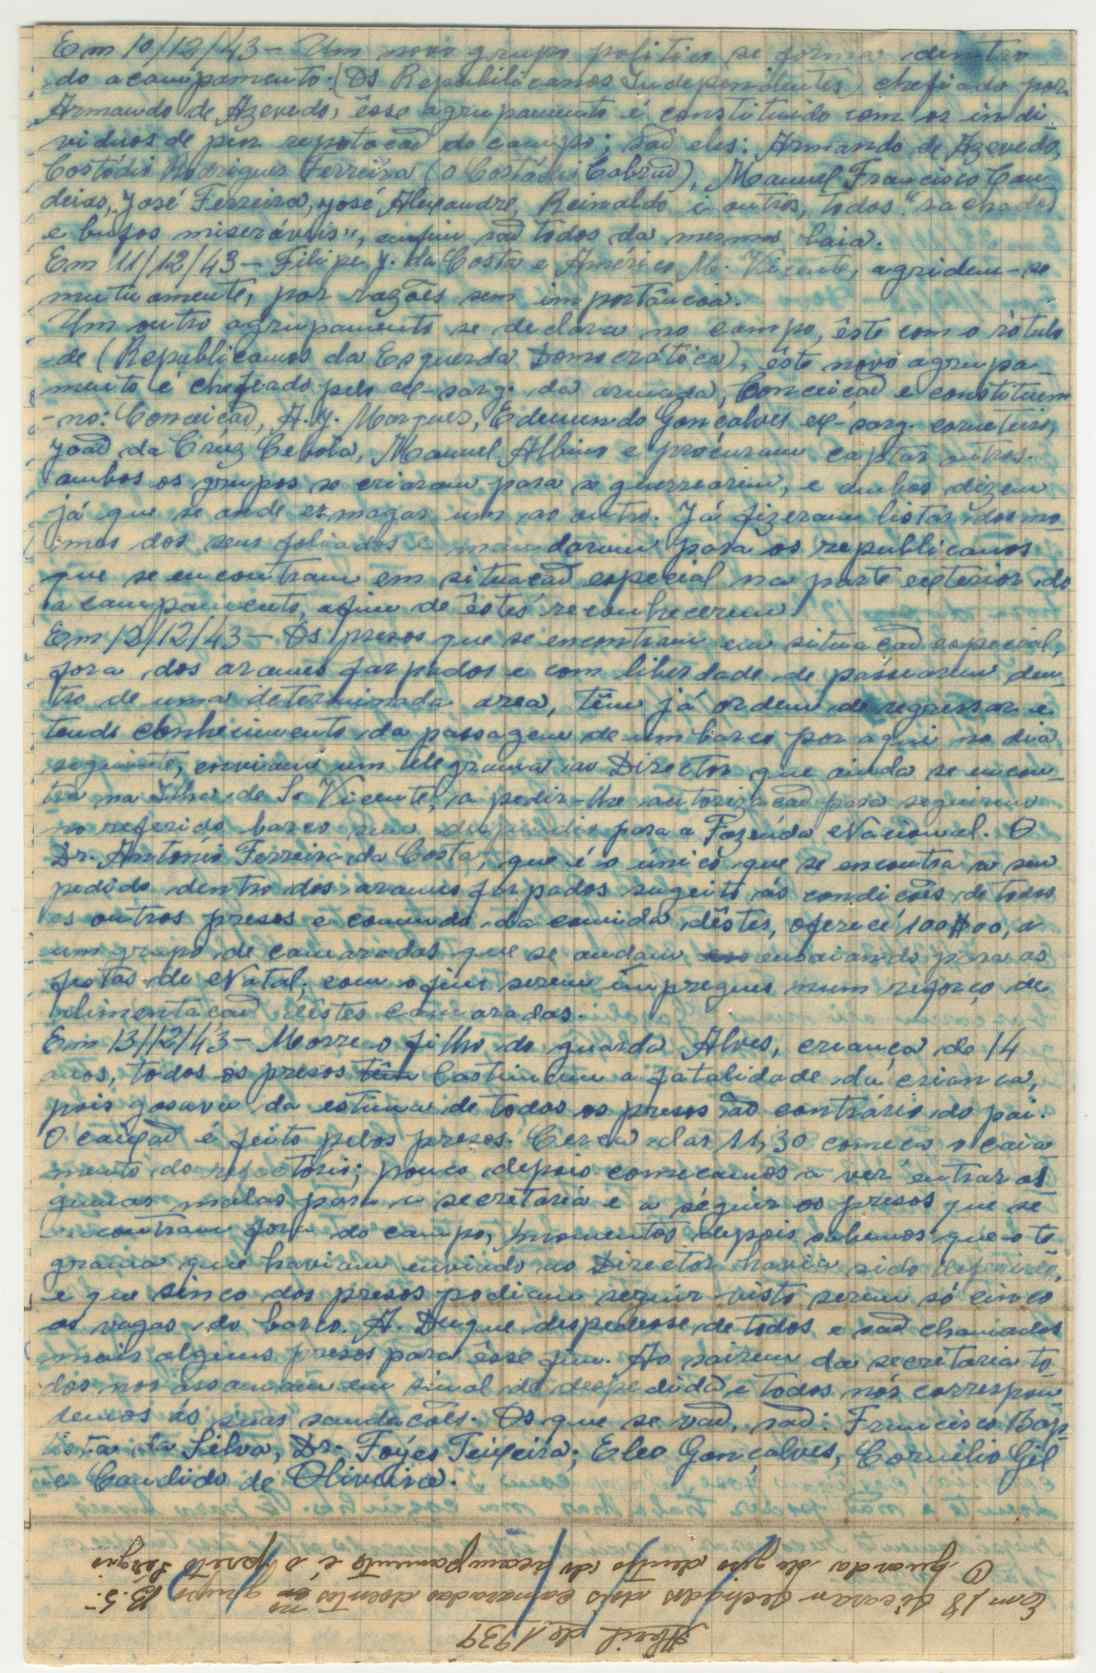 Em 10/12/43 - Um novo grupo politico se forma dentro
do acampamento. (Os Republicanos Independentes) chefiado por
Armando de Azevedo, êsse agrupamento é constituido com os indi
viduos de pior reputacão do campo; são eles: Armando de Azevedo,
Costódio Rodrigues Ferreira (o Costódio Cobrad), Manuel Francisco Can
deias, José Ferreira, José Alexandre, Reinaldo e outros, todos "rachados
e bufos miseráveis", enfim são todos da mesma laia.
Em 11/12/43 - Filipe J. da Costa e Américo M. Vicente, agridem-se
mutuamente, por razões sem importância.
Um outro agrupamento se declara no campo, êste com o rótulo
de (Republicanos da Esquerda Democrática), êste novo agrupa-
mento é chefiado pelo ex-sarg. da armada, Conceicão e constituem
-no: Conceicão, A. J. Marques, Edmundo Gonçalves ex-sarg. corneteiro,
João da Cruz Cebola, Manuel Albino e procuram captar outros.
ambos os grupos se criaram para se guerrearem, e ambos dizem
já que se ande esmagar um ao outro. Já fizeram listas dos no
mes dos seus filiados e mandaram para os republicanos
que se encontram em situacão especial na parte exterior do
acampamento, afim de êstes reconhecerem.
Em 12/12/43 - Os presos que se encontram em situacão especial,
fora dos arames farpados e com liberdade de passearem den-
tro de uma determinada area, têm já ordem de regressar e
tendo conhecimento da passagem de um barco por aqui no dia
seguinte, enviam um telegrama ao Director que ainda se encon-
tra na Ilha de S. Vicente, a pedir-lhe autorizacão para seguirem
no referido barco sem dispendio para a Fazenda Nacional. O
Dr. António Ferreira da Costa, que é o único que se encontra a seu
pedido dentro dos arames farpados sugeito ás condicões de todos
os outros presos e comendo da comida dêstes, oferece 100$00, a
um grupo de camaradas que se andam ensaiando para as
festas do Natal, com o fim serem impregues num reforço de
alimentacão dêstes camaradas.
Em 13/12/43 - Morre o filho do guarda Alves, criança de 14
anos, todos os presos têm lastimam a fatalidade da crianca,
pois gosava da estima de todos os presos ao contrário do pai.
O caixão é feito pelos presos. Cerca das 11,30 começa o caia
mento do refectório; pouco depois comecamos a ver entrar al
gumas malas para a secretaria e a seguir os presos que se
encontram fora do campo, momentos depois sabemos que o te
grama que haviam enviado ao Director havia sido deferido,
e que sinco dos presos podiam seguir visto serem só cinco
as vagas do barco. A. Duque despede-se de todos e são chamados
mais alguns presos para êsse fim. Ao sairem da secretaria to
dos nos acenavam em sinal de despedida e todos nós correspon
demos ás suas saudacões. Os que se vão, são: Francisco Bap-
tista da Silva, Dr. Foyes Teixeira, Eleo Gonçalves, Cornélio Gil
e Candido de Oliveira.
Abril de 1939
Em 18 ficaram fechados dois camaradas doentes no grupo B 5.
O guarda de giro dentro do acampamento é o preto Sergio